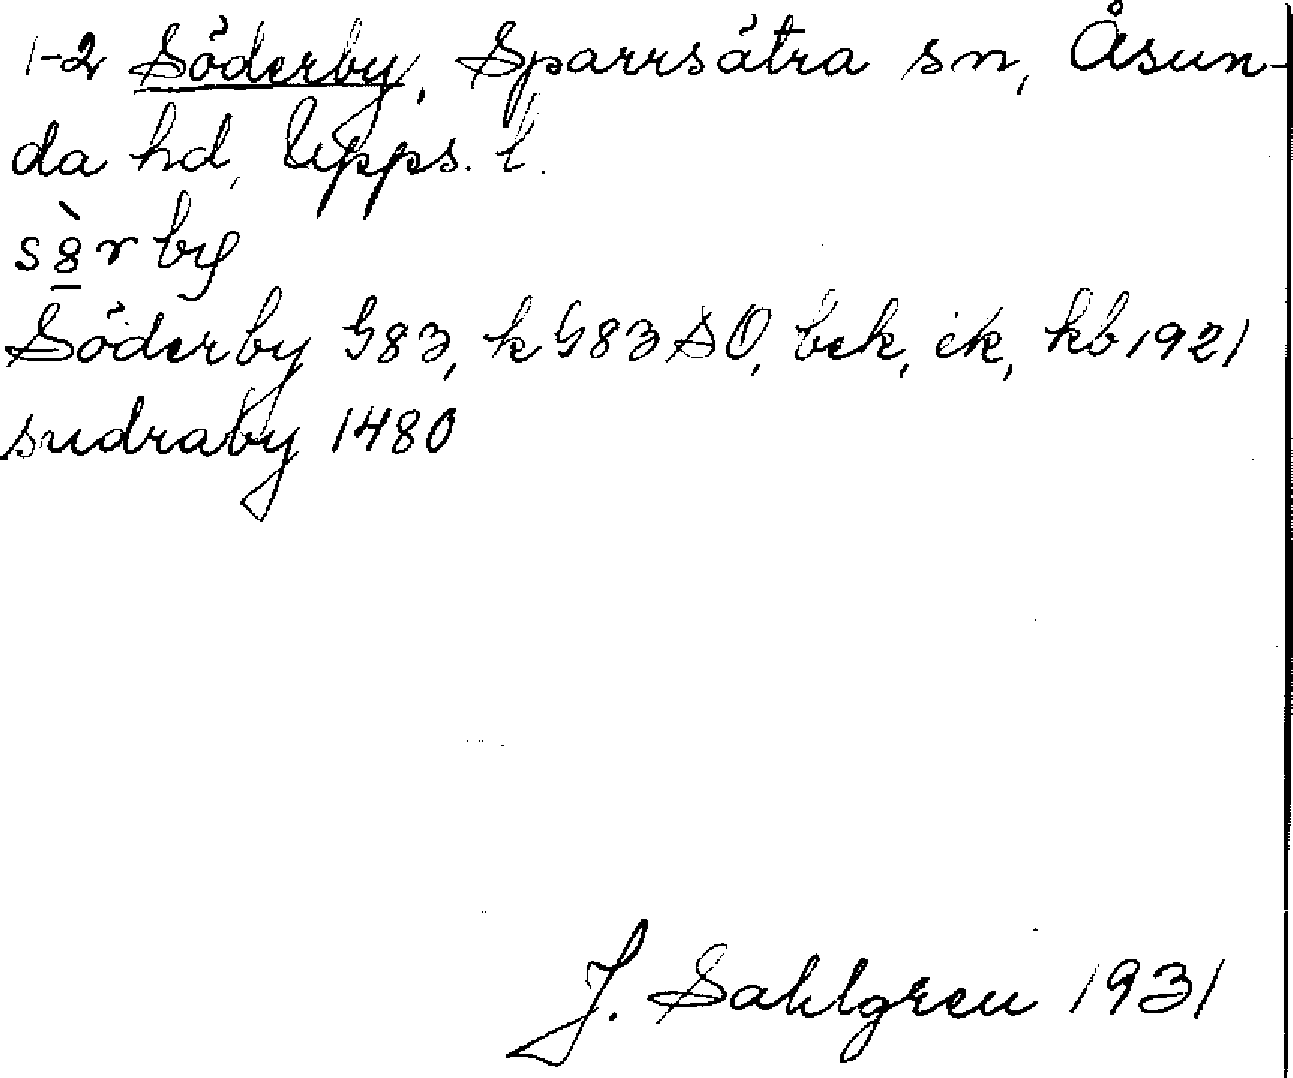 1-2 Söderby, Sparrsätra sn, Åsun-
da hd, Upps. l.
sö̀rby
Söderby G83, k G83 SO, bek, ek, kb 1921
sudraby 1480
J. Sahlgren 1931